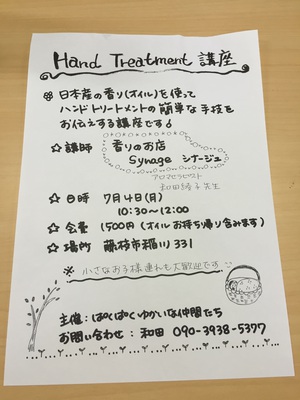 Hand Treatment 講座
日本産の香り(オイル)を使って
ハンドトリートメントの簡単な手技を
お伝えする講座です♪
☆ 講師 香りのお店
Synage シナージュ
アロマセラピスト
和田綾子先生
☆ 日時 7月4日(月)
10:30〜12:00
☆ 会費 1500円 (オイルお持ち帰り含みます)
☆ 場所 藤枝市稲川331
※ 小さなお子様連れも大歓迎です
主催:ぱくぱくゆかいな仲間たち
お問い合わせ:和田 090-3938-5377